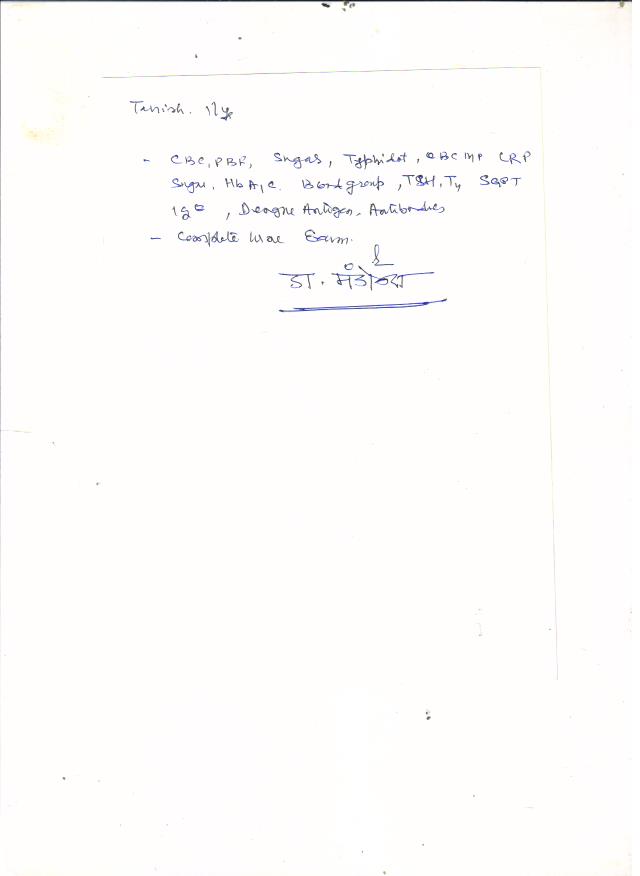 Tanish. 11y
- CBC, PBF, Sugar, Typhidot, QBC MP CRP
Sugar. HbA1c. Blood group, TSH, T4 SGPT
IgE, Dengue Antigen, Antibodies
- Complete Urine Exam.
डा.